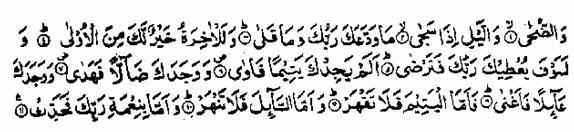 وَالضُّحٰىۙ ۝۱ وَالَّيْلِ اِذَا سَجٰىۙ ۝۲ مَا وَدَّعَكَ رَبُّكَ وَمَا قَلٰىؕ ۝۳ وَلَلْاٰخِرَةُ خَيْرٌ لَّكَ مِنَ الْاُوْلٰىؕ ۝۴ وَ
لَسَوْفَ يُعْطِيْكَ رَبُّكَ فَتَرْضٰىؕ ۝۵ اَلَمْ يَجِدْكَ يَتِيْمًا فَاٰوٰى۪ ۝۶ وَوَجَدَكَ ضَآلًّا فَهَدٰى۪ ۝۷ وَوَجَدَكَ
عَآئِلًا فَاَغْنٰىؕ ۝۸ فَاَمَّا الْيَتِيْمَ فَلَا تَقْهَرْؕ ۝۹ وَاَمَّا السَّآئِلَ فَلَا تَنْهَرْؕ ۝۱۰ وَاَمَّا بِنِعْمَةِ رَبِّكَ فَحَدِّثْ ۝۱۱